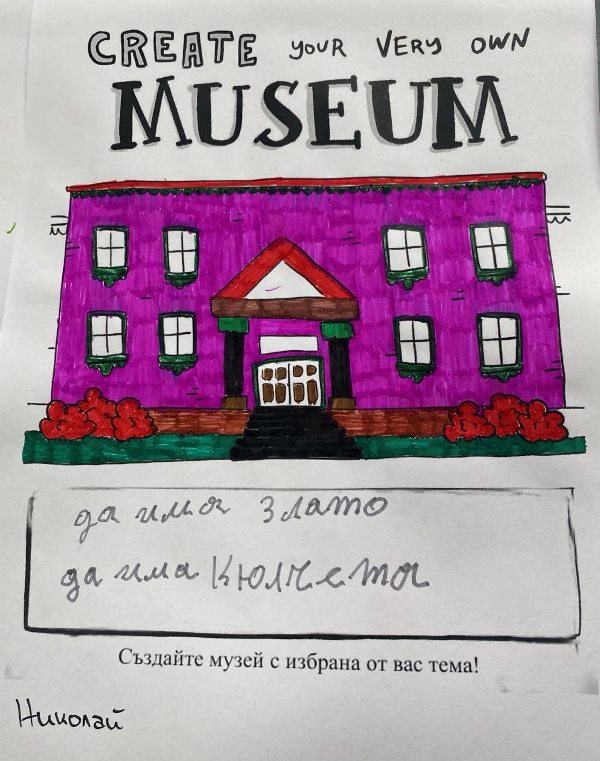 CREATE YOUR VERY OWN
MUSEUM
да има злато
да има кюлчета
Създайте музей с избрана от вас тема!
Николай